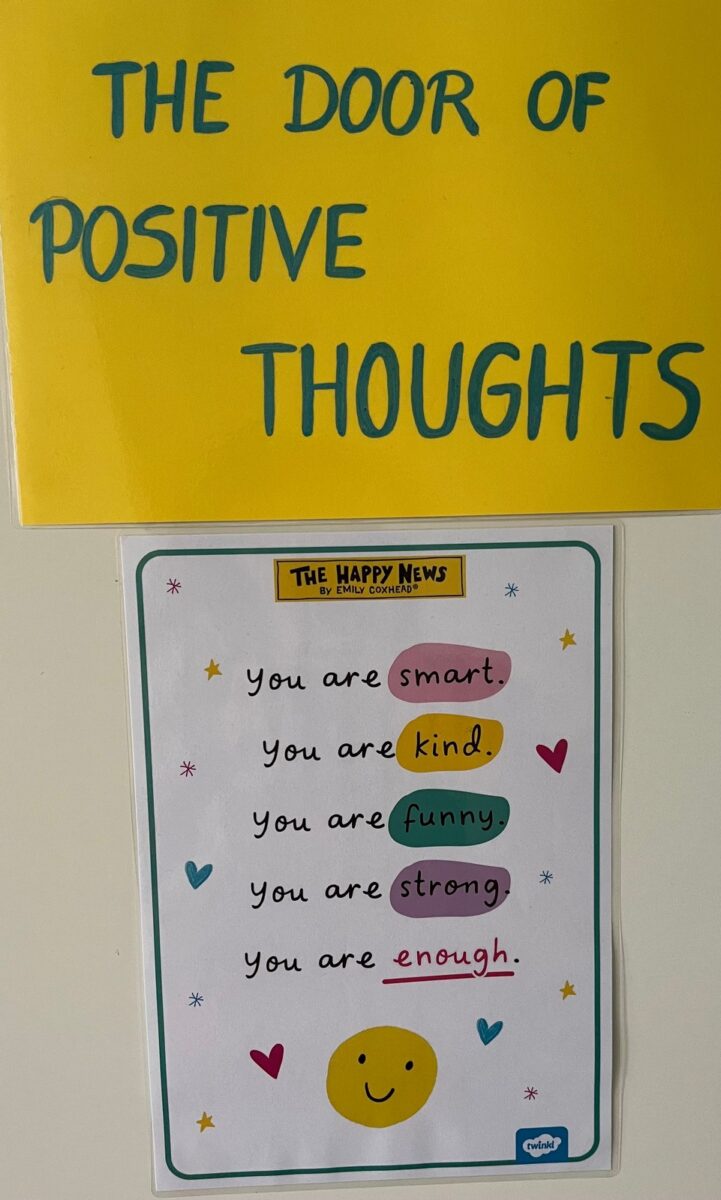 THE DOOR OF
POSITIVE
THOUGHTS
THE HAPPY NEWS
BY EMILY COXHEAD®
you are smart.
you are kind.
you are funny.
you are strong.
you are enough.
twinkl